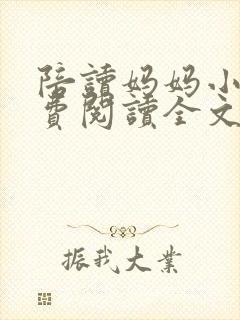 陪讀妈妈小
費閱讀全文
振我大業